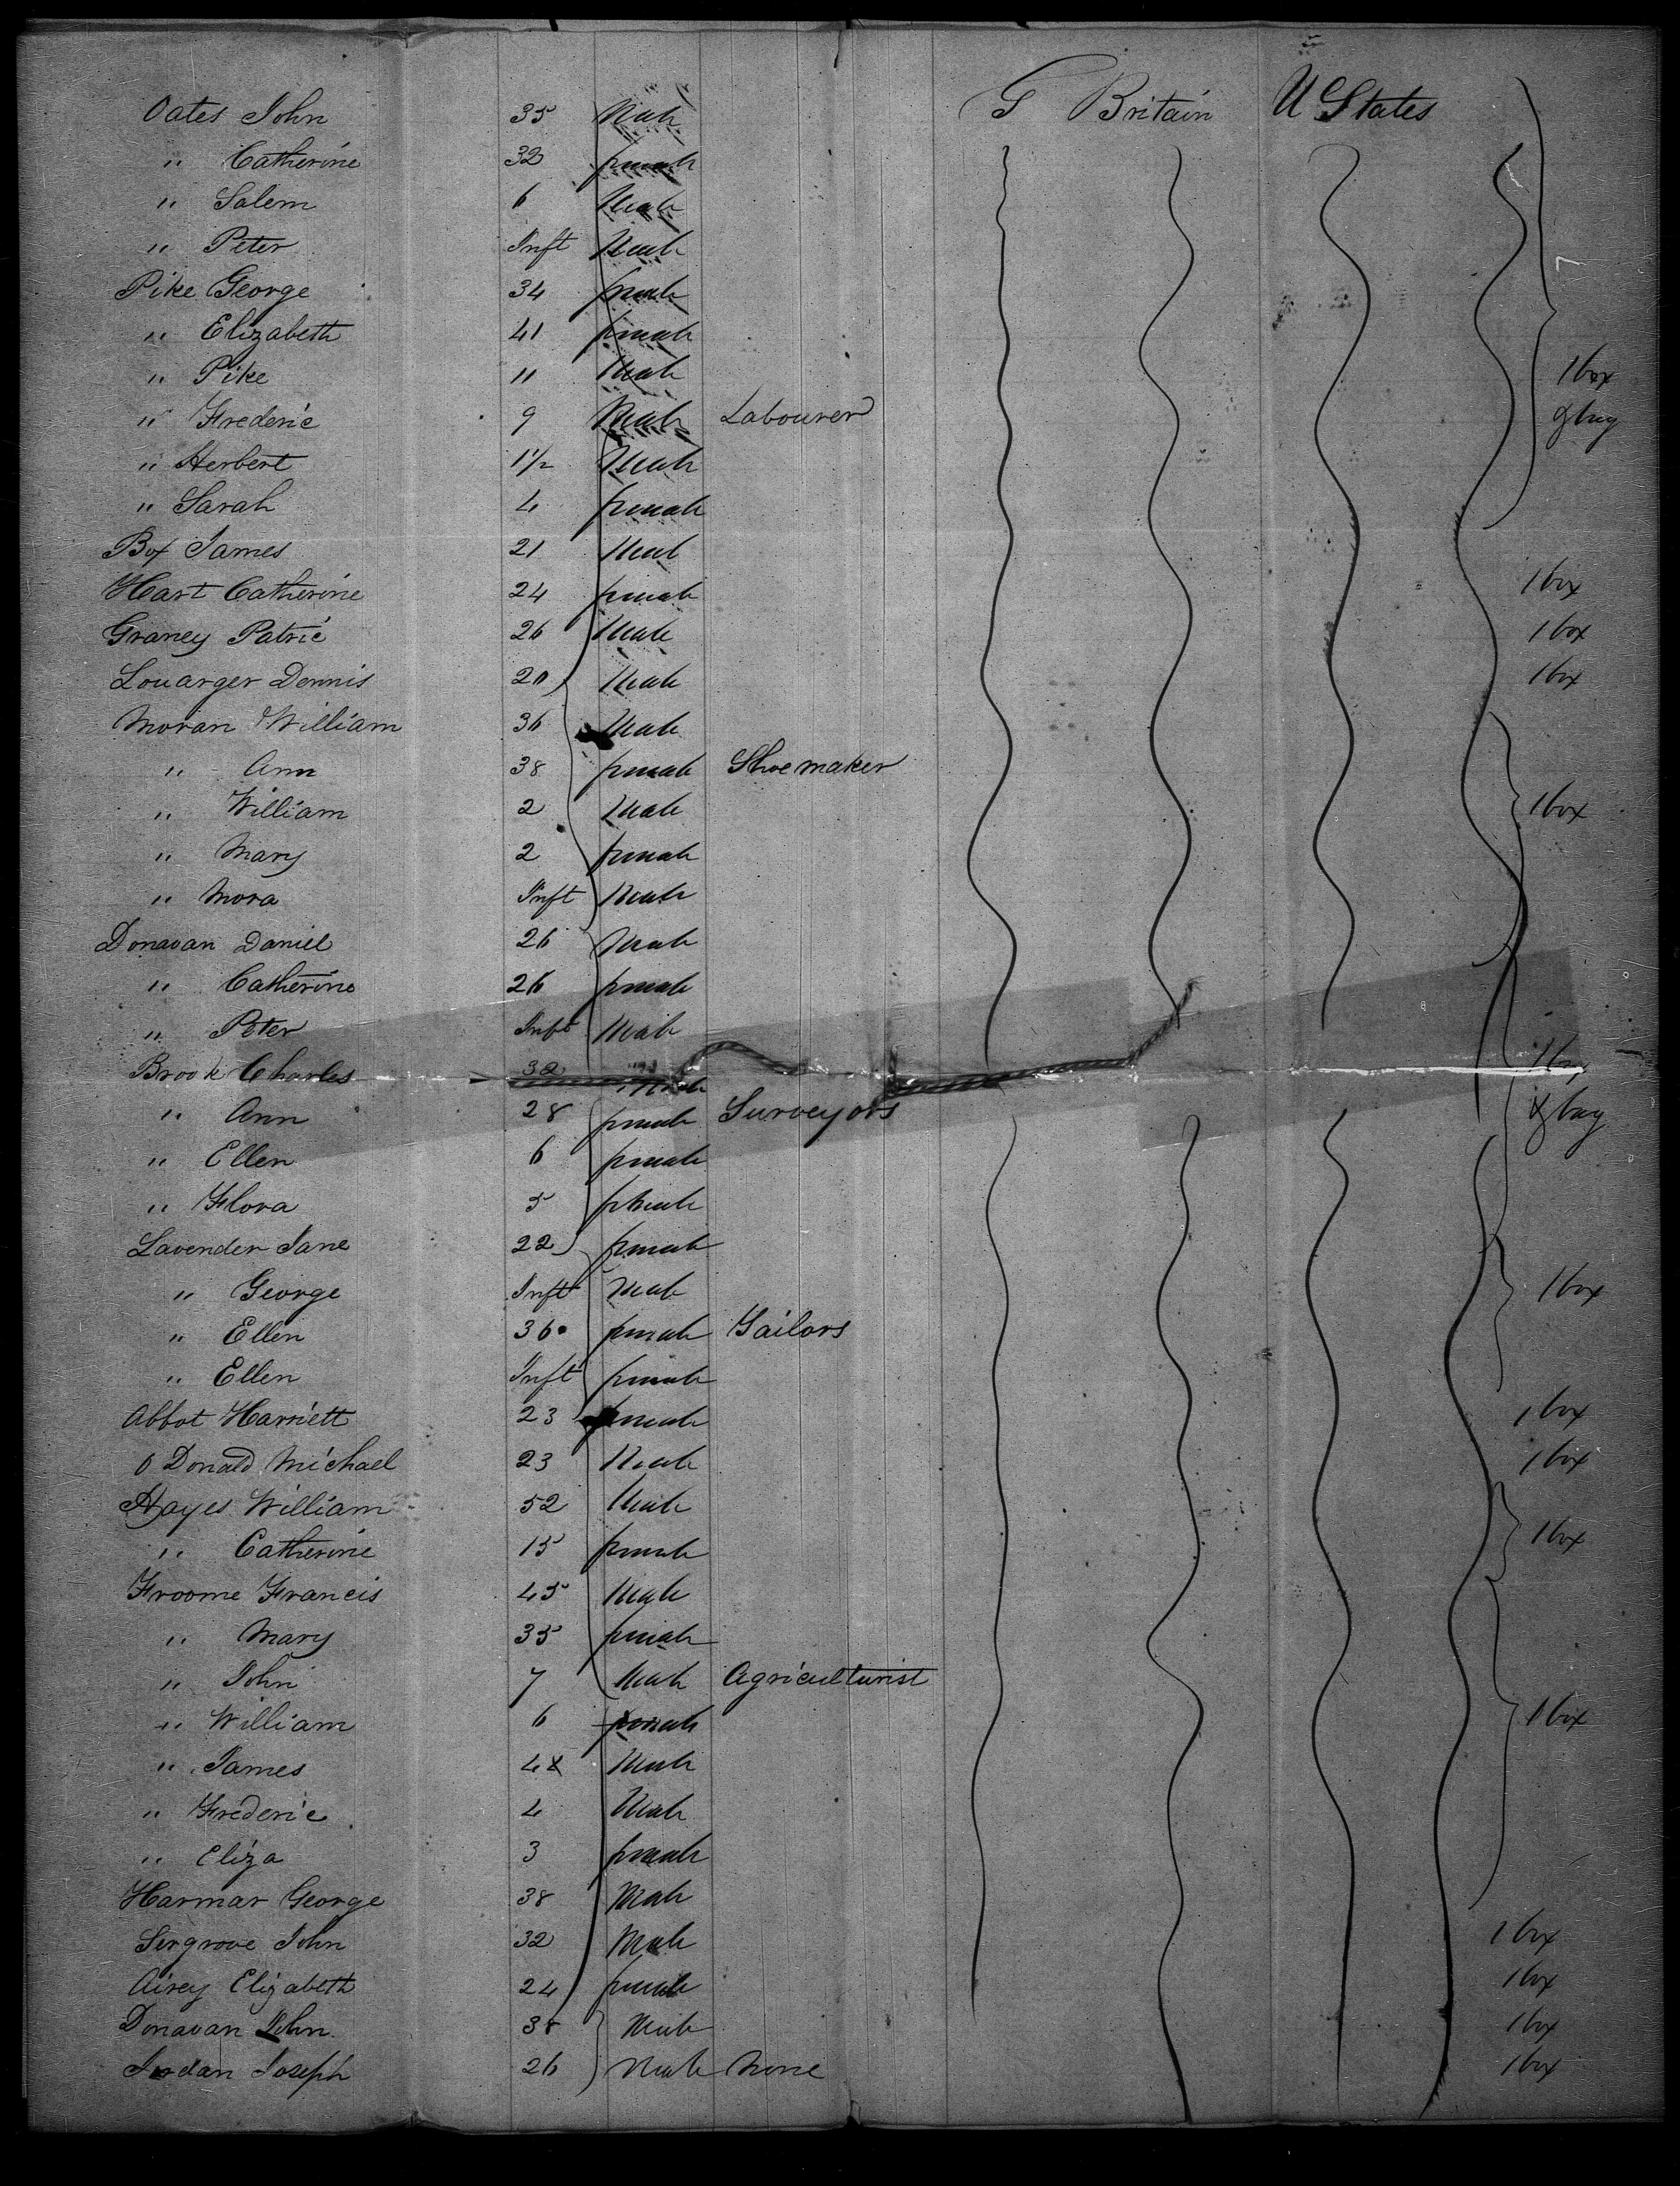 Oates John 35 Male G Britain U States
" Catherine 32 female
" Salem 6 Male
" Peter Inft Male
Pike George 34 female
" Elizabeth 41 female
" Pike 11 Male 1 box
" Frederic 9 Male Labourer & bag
" Herbert 1½ Male
" Sarah 4 female
Box James 21 Male
Hart Catherine 24 female 1 box
Graney Patric 26 Male 1 box
Louarger Dennis 20 Male 1 box
Moran William 36 Male
" Ann 38 female Shoemaker
" William 2 Male 1 box
" Mary 2 female
" Mora Inft Male
Donavan Daniel 26 Male
" Catherine 26 female
" Peter Inft Male
Brook Charles 32 Male
" Ann 28 female Surveyors & bag
" Ellen 6 female
" Flora 5 female
Lavender Jane 22 female
" George Inft Male 1 box
" Ellen 36 female Tailors
" Ellen Inft female
Abbot Harriett 23 female 1 box
O Donald Michael 23 Male 1 box
Hayes William 52 Male
" Catherine 15 female 1 box
Froome Francis 45 Male
" Mary 35 female
" John 7 Male Agriculturist
" William 6 female 1 box
" James 4 Male
" Frederic 4 Male
" Eliza 3 female
Harmar George 38 Male
Sergrove John 32 Male 1 box
Airey Elizabeth 24 female 1 box
Donavan John 38 Male 1 box
Jordan Joseph 26 Male None 1 box